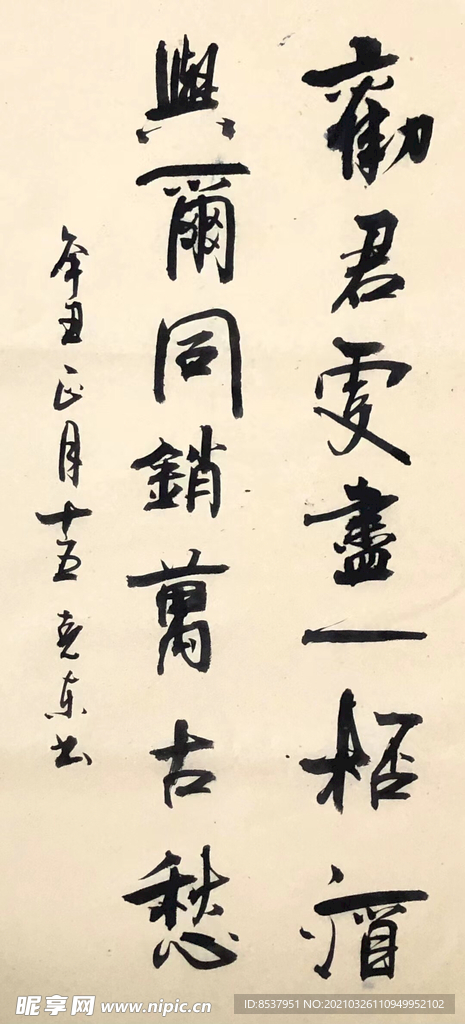 勸君更盡一桮酒
與爾同銷萬古愁
辛丑正月十五尧东书
昵享网 www.nipic.cn
ID:8537951 NO:20210326110949952102